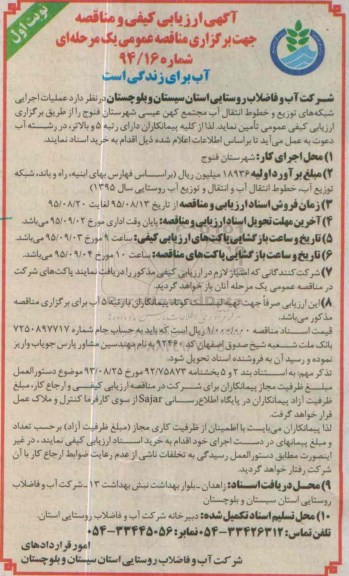 نوبت اول
آگهی ارزیابی کیفی و مناقصه
جهت برگزاری مناقصه عمومی یک مرحله‌ای
شماره ۹۴/۱۶
آب برای زندگی است
شرکت آب و فاضلاب روستایی استان سیستان و بلوچستان در نظر دارد عملیات اجرایی
شبکه‌های توزیع و خطوط انتقال آب مجتمع کهن عیسی شهرستان فنوج را از طریق برگزاری
ارزیابی کیفی عمومی تأمین نماید. لذا از کلیه پیمانکاران دارای رتبه ۵ و بالاتر، در رشته آب
دعوت به عمل می‌آید تا براساس اطلاعات اعلام شده ذیل اقدام به خرید اسناد نمایند.
۱) محل اجرای کار: شهرستان فنوج
۲) مبلغ برآورد اولیه ۱۸۹۳۶ میلیون ریال (براساس فهارس بهای ابنیه، راه و باند، شبکه
توزیع آب، خطوط انتقال آب و انتقال و توزیع آب روستایی سال ۱۳۹۵)
۳) زمان فروش اسناد ارزیابی و مناقصه از تاریخ ۹۵/۰۸/۱۳ لغایت ۹۵/۰۸/۲۰
۴) آخرین مهلت تحویل اسناد ارزیابی و مناقصه: پایان وقت اداری مورخ ۹۵/۰۹/۰۲ می‌باشد.
۵) تاریخ و ساعت بازگشایی پاکت‌های ارزیابی کیفی: ساعت ۹ مورخ ۹۵/۰۹/۰۳ می‌باشد.
۶) تاریخ و ساعت بازگشایی پاکت‌های مناقصه: ساعت ۱۰ مورخ ۹۵/۰۹/۰۴ می‌باشد.
۷) شرکت‌کنندگانی که امتیاز لازم در ارزیابی کیفی مذکور را دریافت نمایند پاکت‌های شرکت
در مناقصه عمومی یک مرحله آنان باز خواهد گردید.
۸) این ارزیابی صرفاً جهت تهیه لیست کوتاه پیمانکاران با رتبه ۵ آب برای برگزاری مناقصه
مذکور می‌باشد.
قیمت اسناد مناقصه ۱/۰۰۰/۰۰۰ ریال است که باید به حساب جام شماره ۷۲۵۰۸۹۷۷۱۷
بانک ملت شعبه شیخ صدوق اصفهان کد ۹۲۴۶۰ به نام مهندسین مشاور پارس جویاب واریز
نموده و رسید آن به فروشنده اسناد تحویل شود.
تذکر مهم: به استناد بند ۲ و ۵ بخشنامه ۹۲/۷۵۸۷۳ مورخ ۹۳/۰۸/۲۵ موضوع دستورالعمل
مبلغ ظرفیت مجاز پیمانکاران برای شرکت در مناقصه ارزیابی کیفی و ارجاع کار، مبلغ
ظرفیت آزاد پیمانکاران در پایگاه اطلاع‌رسانی Sajar از سوی کارفرما کنترل و ملاک عمل
قرار خواهد گرفت.
لذا پیمانکاران می‌بایست با اطمینان از ظرفیت کاری مجاز (مبلغ ظرفیت آزاد) برحسب تعداد
و مبلغ پیمانهای در دست اجرای خود اقدام به خرید اسناد ارزیابی کیفی نمایند، در غیر
اینصورت مطابق دستورالعمل رسیدگی به تخلفات ناشی از عدم رعایت ضوابط ارجاع کار با آن
شرکت رفتار خواهد گردید.
۹) محل دریافت اسناد: زاهدان - بلوار بهداشت نبش بهداشت ۱۳ - شرکت آب و فاضلاب
روستایی استان سیستان و بلوچستان
۱۰) محل تسلیم اسناد تکمیل شده: دبیرخانه شرکت آب و فاضلاب روستایی استان.
تلفن تماس: ۳۳۴۲۶۳۱۲-۰۵۴ نمابر: ۳۳۴۴۵۰۵۶-۰۵۴
امور قراردادهای
شرکت آب و فاضلاب روستایی استان سیستان و بلوچستان